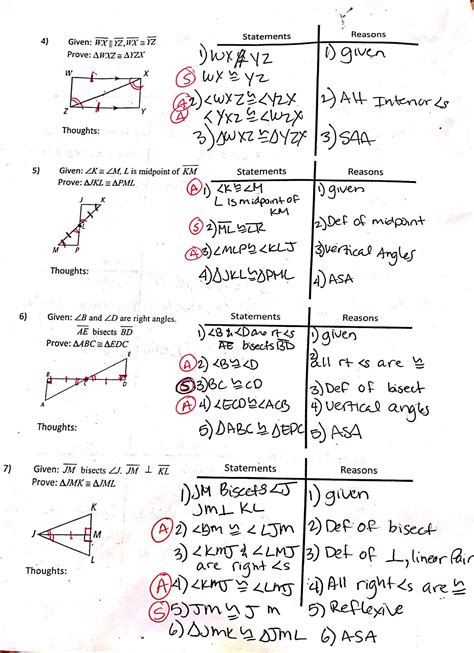 Statements Reasons
4) Given: WX ∥ YZ, WX ≅ YZ
Prove: ΔWXZ ≅ ΔYZX
W X
Z Y
Thoughts:
1) WX ∥ YZ 1) given
S WX ≅ YZ
A 2) <WXZ ≅ <YZX 2) Alt Interior <s
A <YXZ ≅ <WZX
3) ΔWXZ ≅ ΔYZX 3) SAA
5) Given: ∠K ≅ ∠M, L is midpoint of KM
Prove: ΔJKL ≅ ΔPML
J K
L
M P
Thoughts:
Statements Reasons
A 1) <K ≅ <M 1) given
L is midpoint of
KM
S 2) ML ≅ LK 2) Def of midpoint
A 3) <MLP ≅ <KLJ 3) Vertical Angles
4) ΔJKL ≅ ΔPML 4) ASA
6) Given: ∠B and ∠D are right angles.
AE bisects BD
Prove: ΔABC ≅ ΔEDC
E
B C D
A
Thoughts:
Statements Reasons
1) <B & <D are rt <s 1) given
AE bisects BD
A 2) <B ≅ <D 2) all rt <s are ≅
S 3) BC ≅ CD 3) Def of bisect
A 4) <ECD ≅ <ACB 4) Vertical angles
5) ΔABC ≅ ΔEDC 5) ASA
7) Given: JM bisects ∠J. JM ⊥ KL
Prove: ΔJMK ≅ ΔJML
K
J M
L
Thoughts:
Statements Reasons
1) JM Bisects <J 1) given
JM ⊥ KL
A 2) ≅ <LJM 2) Def of bisect
3) <KMJ & <LMJ 3) Def of ⊥, linear Pair
are right <s
A 4) <KMJ ≅ <LMJ 4) All right <s are ≅
S 5) JM ≅ JM 5) Reflexive
6) ΔJMK ≅ ΔJML 6) ASA